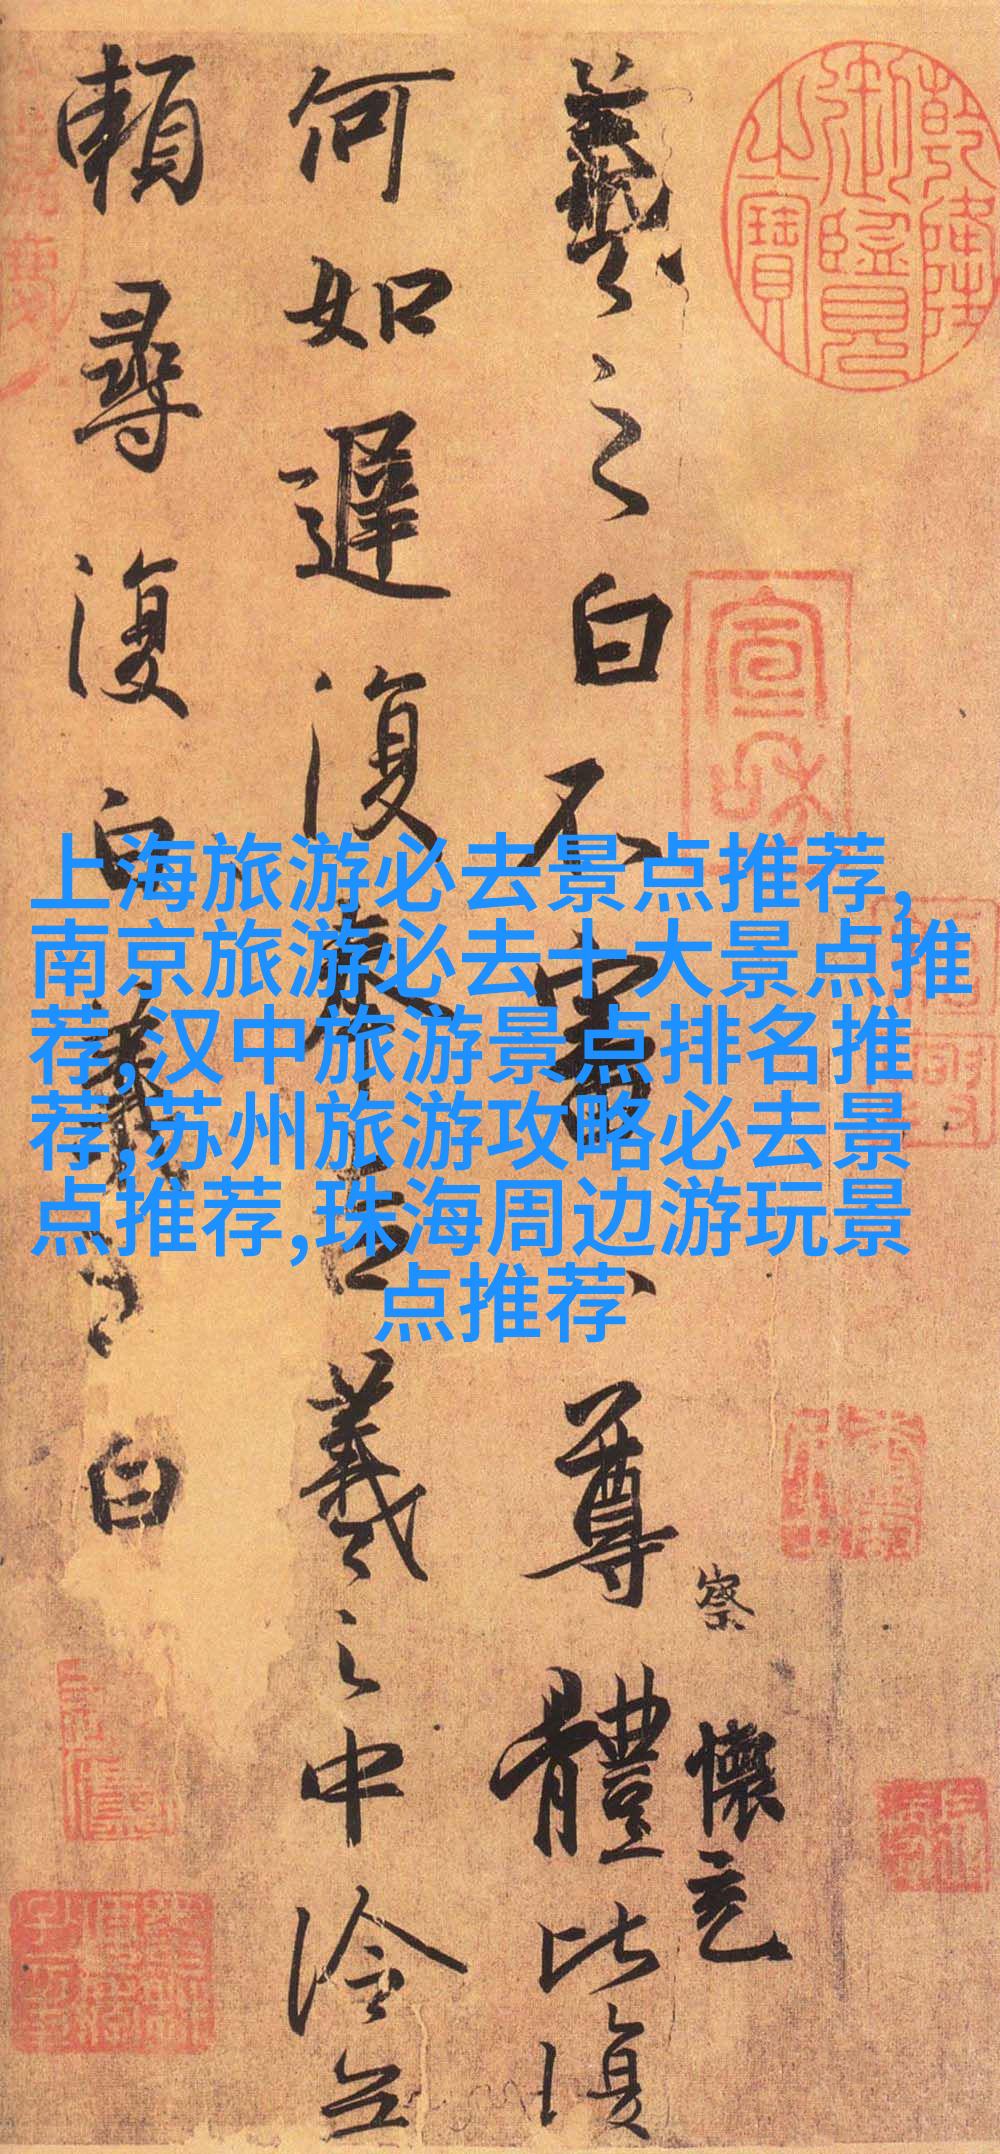 上海旅游必去景点推荐,
南京旅游必去十大景点推
荐,汉中旅游景点排名推
荐,苏州旅游攻略必去景
点推荐,珠海周边游玩景
点推荐
乾隆御覽之寶
宣和
察
懷充
羲之白不審尊體比復
何如遲復奉告羲之中冷無
賴尋復白羲之白